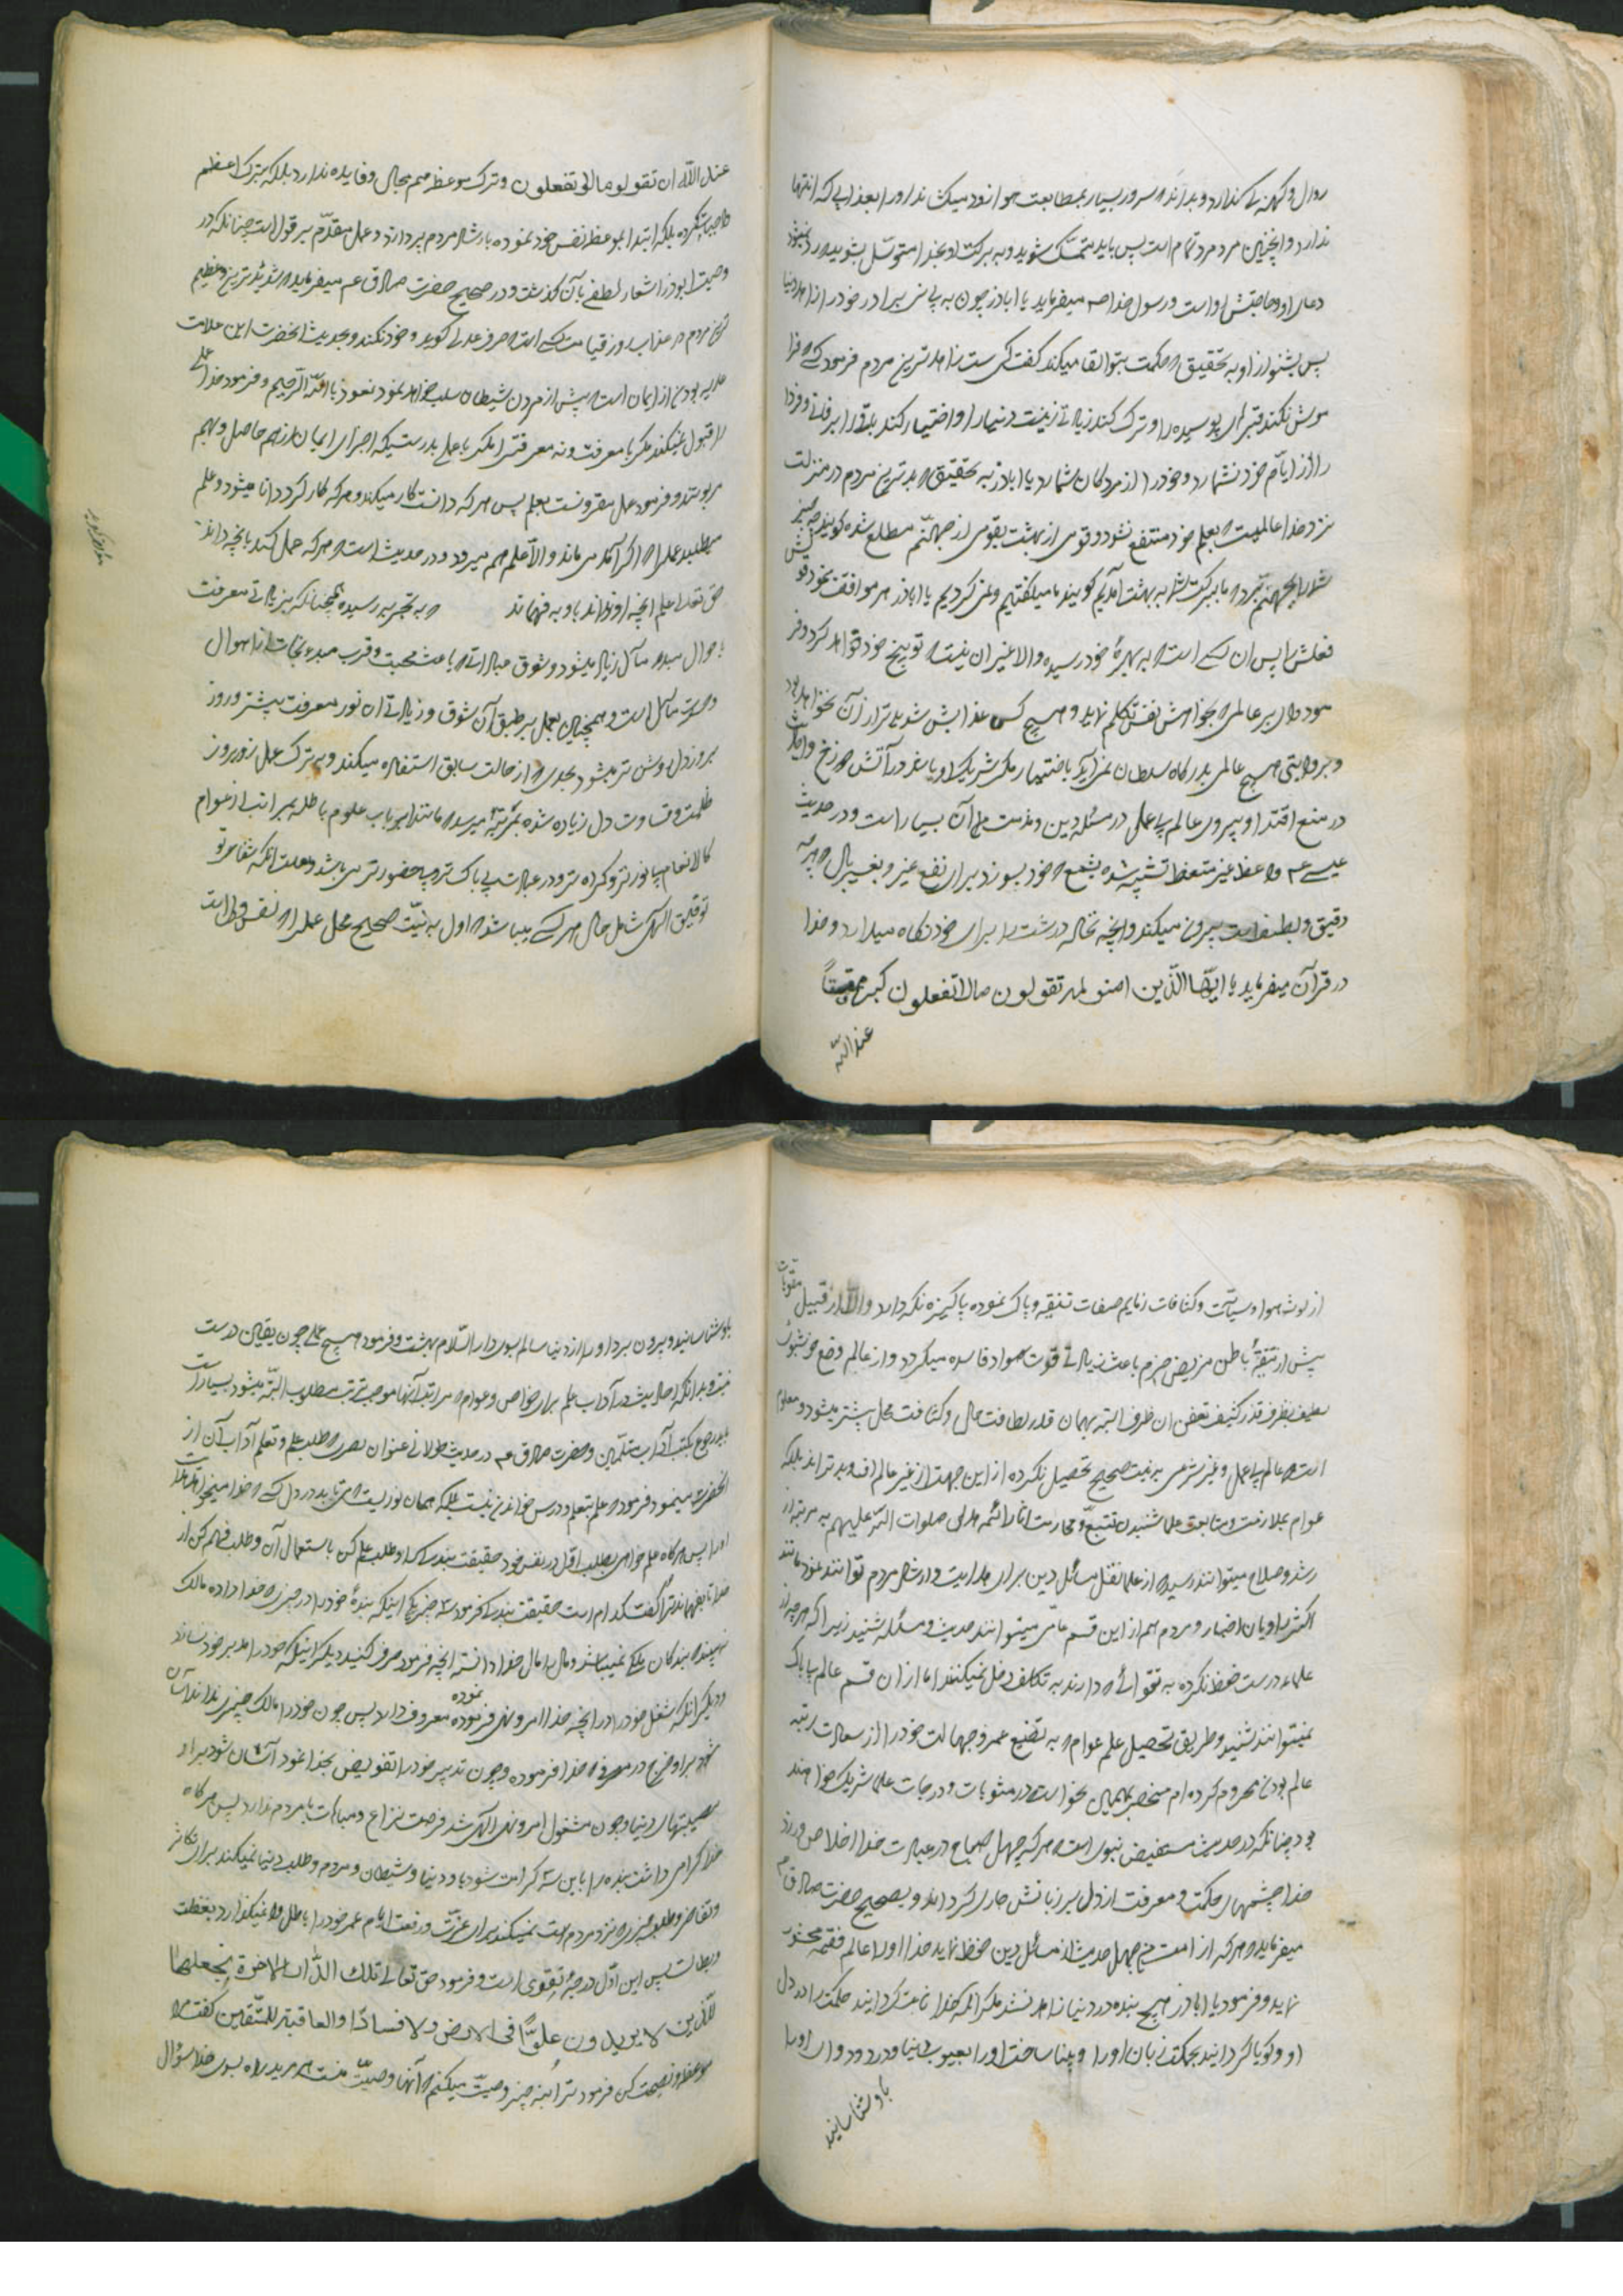 روال و کهنه کی ندارد و بداند که سرور بسیار بمطابعت هوا زود میکشاند او را بعذابی که انتها
ندارد و اینچنین مرد مرد تمام است پس باید متمسک شوید و به برکت او بخدا متوسل بشوید
دعای او و حاجتش روا است و رسول خدا صم میفرماید یا اباذر چون به بینی برادر خود را زاهد دنیا
پس بشنو از او به تحقیق که حکمت بتو القا میکند گفت کی ست زاهدترین مردم فرمود کسی که فرا
موش نکند قبرهای پوسیده را و ترک کند زیادتی زینت دنیا را و اختیار کند باقی را بر فانی و فردا
را از ایام خود نشمارد و خود را از مردگان شمارد یا اباذر به تحقیق که بدترین مردم در منزلت
نزد خدا عالمیست که بعلم خود منتفع نشود و قومی از بهشت بقومی از جهنم مطلع شده گویند چه چیز
شما را بجهنم برد که ما ببرکت شما به بهشت آمدیم گویند ما میگفتیم و نمی کردیم یا اباذر هر که موافقت نمود قولش
فعلش را پس آن کسی است که به بهرۀ خود رسیده و الا غیر آن نیست که توبیخ خود خواهد کرد و فر
مود وای بر عالمی که بخواهش نفس تکلم نماید و هیچ کس عذابش شدیدتر از آن نخواهد بود
و بروایتی هیچ عالمی بدرگاه سلطان نمی آید باختیار مگر شریک او باشد در آتش دوزخ و احادیث
در منع اقتدا و پیروی عالم بی عمل در مسئله دین و مذمت آن بسیار است و در حدیث
عیسی عم واعظ غیر متعظ تشبیه شده بشمع که خود بسوزد برای نفع غیر و بغربال که هر چه
دقیق و لطیف است بیرون میکند و آنچه نخاله درشت را برای خود نگاه میدارد و خدا
در قرآن میفرماید یا ایها الذین امنو لم تقولون مالا تفعلون کبر مقتاً
عند الله
عند الله ان تقولو مالا تفعلون و ترک موعظه هم بحال و فایده ندارد بلکه بترک اعظم
واجبات کرده بلکه ابتدا بموعظه نفس خود نموده بارشاد مردم پردازد و عمل مقدم بر قول است چنانکه در
وصیت ابوذر اشعار لطفی بآن گذشت و در صحیح حضرت صادق عم میفرماید که شدیدترین و عظیم
ترین مردم در عذاب روز قیامت کسی است که حرف عدلی گوید و خود نکند و بحدیث آنحضرت این علامت
عاریه بودن از ایمان است که پیش از مردن شیطان سلب خواهد نمود نعوذ باالله الرحیم و فرمود خدا عملی
را قبول نمیکند مگر با معرفت و نه معرفتی را مگر با عمل بدرستیکه اجزای ایمان از هم حاصل و بهم
مربوطند و فرمود عمل مقرونست بعلم پس هر که دانست کار میکند و هر که کار کرد دانا میشود و علم
میطلبد عمل را اگر آمد می ماند و الا علم هم میرود و در حدیث است که هر که عمل کند بآنچه داند
حق تعالی علم آنچه او نداند باو به فهماند که به تجربه رسیده همچنانکه بزیادتی معرفت
باحوال مبدء و مآل زیاد میشود و شوق عبادات که باعث محبت و قرب مبدء و نجات از اهوال
وحشت مآل است و همچنین بعمل بر طبق آن شوق و زیادتی آن نور معرفت بیشتر و روز
بروز دل روشن تر میشود بحدی که از حالت سابق استغفار میکند و به ترک عمل روز بروز
ظلمت و قساوت دل زیاده شده بمرتبۀ میرسد که مانند ارباب علوم باطله بمراتب از عوام
کالانعام بی نورتر و گمراه تر و در عبادت بی باک تر و بی حضورتر می باشد بعلت آنکه شقاء تو
توفیق الهی شامل حال هر کسی میباشد که اول به نیت صحیح محل عمل را که نفس و دل است
از لوث هوا و سیآت و کثافات ذمایم صفات تنقیه و پاک نموده پاکیزه نگه دارد والا از قبیل مقویات
پیش از تنقیۀ باطن مریض جزم باعث زیادتی قوت مواد فاسده میگردد و از عالم وضع خوشبوی
لطیف بظرف قذر کثیف تعفن آن ظرف البته بهمان قدر لطافت حال و کثافت محل بیشتر میشود و معلوم
است که عالم بی عمل و غیر شرعی به نیت صحیح تحصیل نکرده از این جهت از غیر عالم افسد و بدتر اند بلکه
عوام بملازمت و متابعت علما شنیدن تتبع و ممارست آثار ائمه هدی صلوات الله علیهم به مرتبه از
رشد و صلاح میتوانند رسید که از علما نقل مسائل دین برای هدایت و ارشاد مردم توانند نمود مانند
اکثر راویان اخبار و مردم هم از این قسم عامی میتوانند حدیث و مسئله شنید زیرا که هر چه از
علماء درست حفظ نکرده به تقوائی که دارند به تکلف دخل نمیکنند اما از آن قسم عالم بی باک
نمیتوانند شنید و طریق تحصیل علم عوام که به تضییع عمر و جهالت خود را از سعادت رتبه
عالم بودن محروم کرده ام منحصر بهمین نحو است در مثوبات و درجات علما شریک خواهند
بود چنانکه در حدیث مستفیض نبوی است که هر که چهل صباح در عبادت خدا اخلاص ورزد
خدا چشمهای حکمت و معرفت از دل بر زبانش جاری گرداند و بصحیح حضرت صادق عم
میفرماید که هر که از امت من چهل حدیث از مسائل دین حفظ نماید خدا او را عالم فقیه محشور
نماید و فرمود یا اباذر هیچ بنده در دنیا زاهد نشد مگر آنکه خدا ثابت گردانید حکمت را در دل
او و گویا گردانید بحکمت زبان او را و بینا ساخت او را بعیوب دنیا و درد و دوای او را
باو شناسانید
باو شناسانید و بیرون برد او را از دنیا سالم بسوی دار السلام بهشت و فرمود هیچ عملی چون یقین درست
نیست و بدانکه احادیث در آداب علم برای خواص و عوام که مراتب آنها موجب ترتب مطلوب البته میشود بسیار است
باید رجوع بکتب آداب متعلمین و حضرت صادق عم در حدیث طولانی عنوان بصری که طلب علم و تعلم آداب آن از
آنحضرت مینمود فرمود که علم بتعلم و درس خواندن نیست بلکه همان نوریست که می تابد در دل کسی که خدا میخواهد هدایت
او را پس هرگاه علم خواهی بطلب اول در نفس خود حقیقت بندگی را و طلب علم کن باستعمال آن و طلب فهم کن از
خدا تا بفهماند ترا گفت کدام است حقیقت بندگی فرمود سه چیز یکی اینکه بندۀ خود را در چیزی که خدا داده مالک
نه بیند که بندگان ملکی نمیباشد و مال را مال خدا دانسته آنچه فرمود صرف کنید دیگر اینکه خود را مدبر خود نسازد
و دیگر آنکه شغل خود را در آنچه خدا امر و نهی فرموده نموده معروف دارد پس چون خود را مالک چیزی نداند آسان
شود بر او خرج در مصرفی که خدا فرموده و چون تدبیر خود را تفویض بخدا نمود آسان شود بر او
مصیبتهای دنیا و چون مشغول امر و نهی الهی شد فرصت نزاع و مباهات با مردم ندارد پس هرگاه
خدا گرامی داشت بنده را باین سه کرامت شود با و دنیا و شیطان و مردم و طلب دنیا نمیکند برای تکاثر
و تفاخر و طلب چیزی که نزد مردم است نمیکند برای عزت و رفعت ایام عمر خود را باطل وا نمیگذارد بغفلت
و بطالت پس این اول درجۀ تقوی است و فرمود حق تعالی تلک الدار الاخرة نجعلها
للذین لا یریدون علواً فی الارض ولا فساداً والعاقبة للمتقین گفت مرا
موعظه و نصیحت کن فرمود ترا بنه چیز وصیت میکنم که آنها وصیت منست هر مرید راه بسوی خدا سؤال